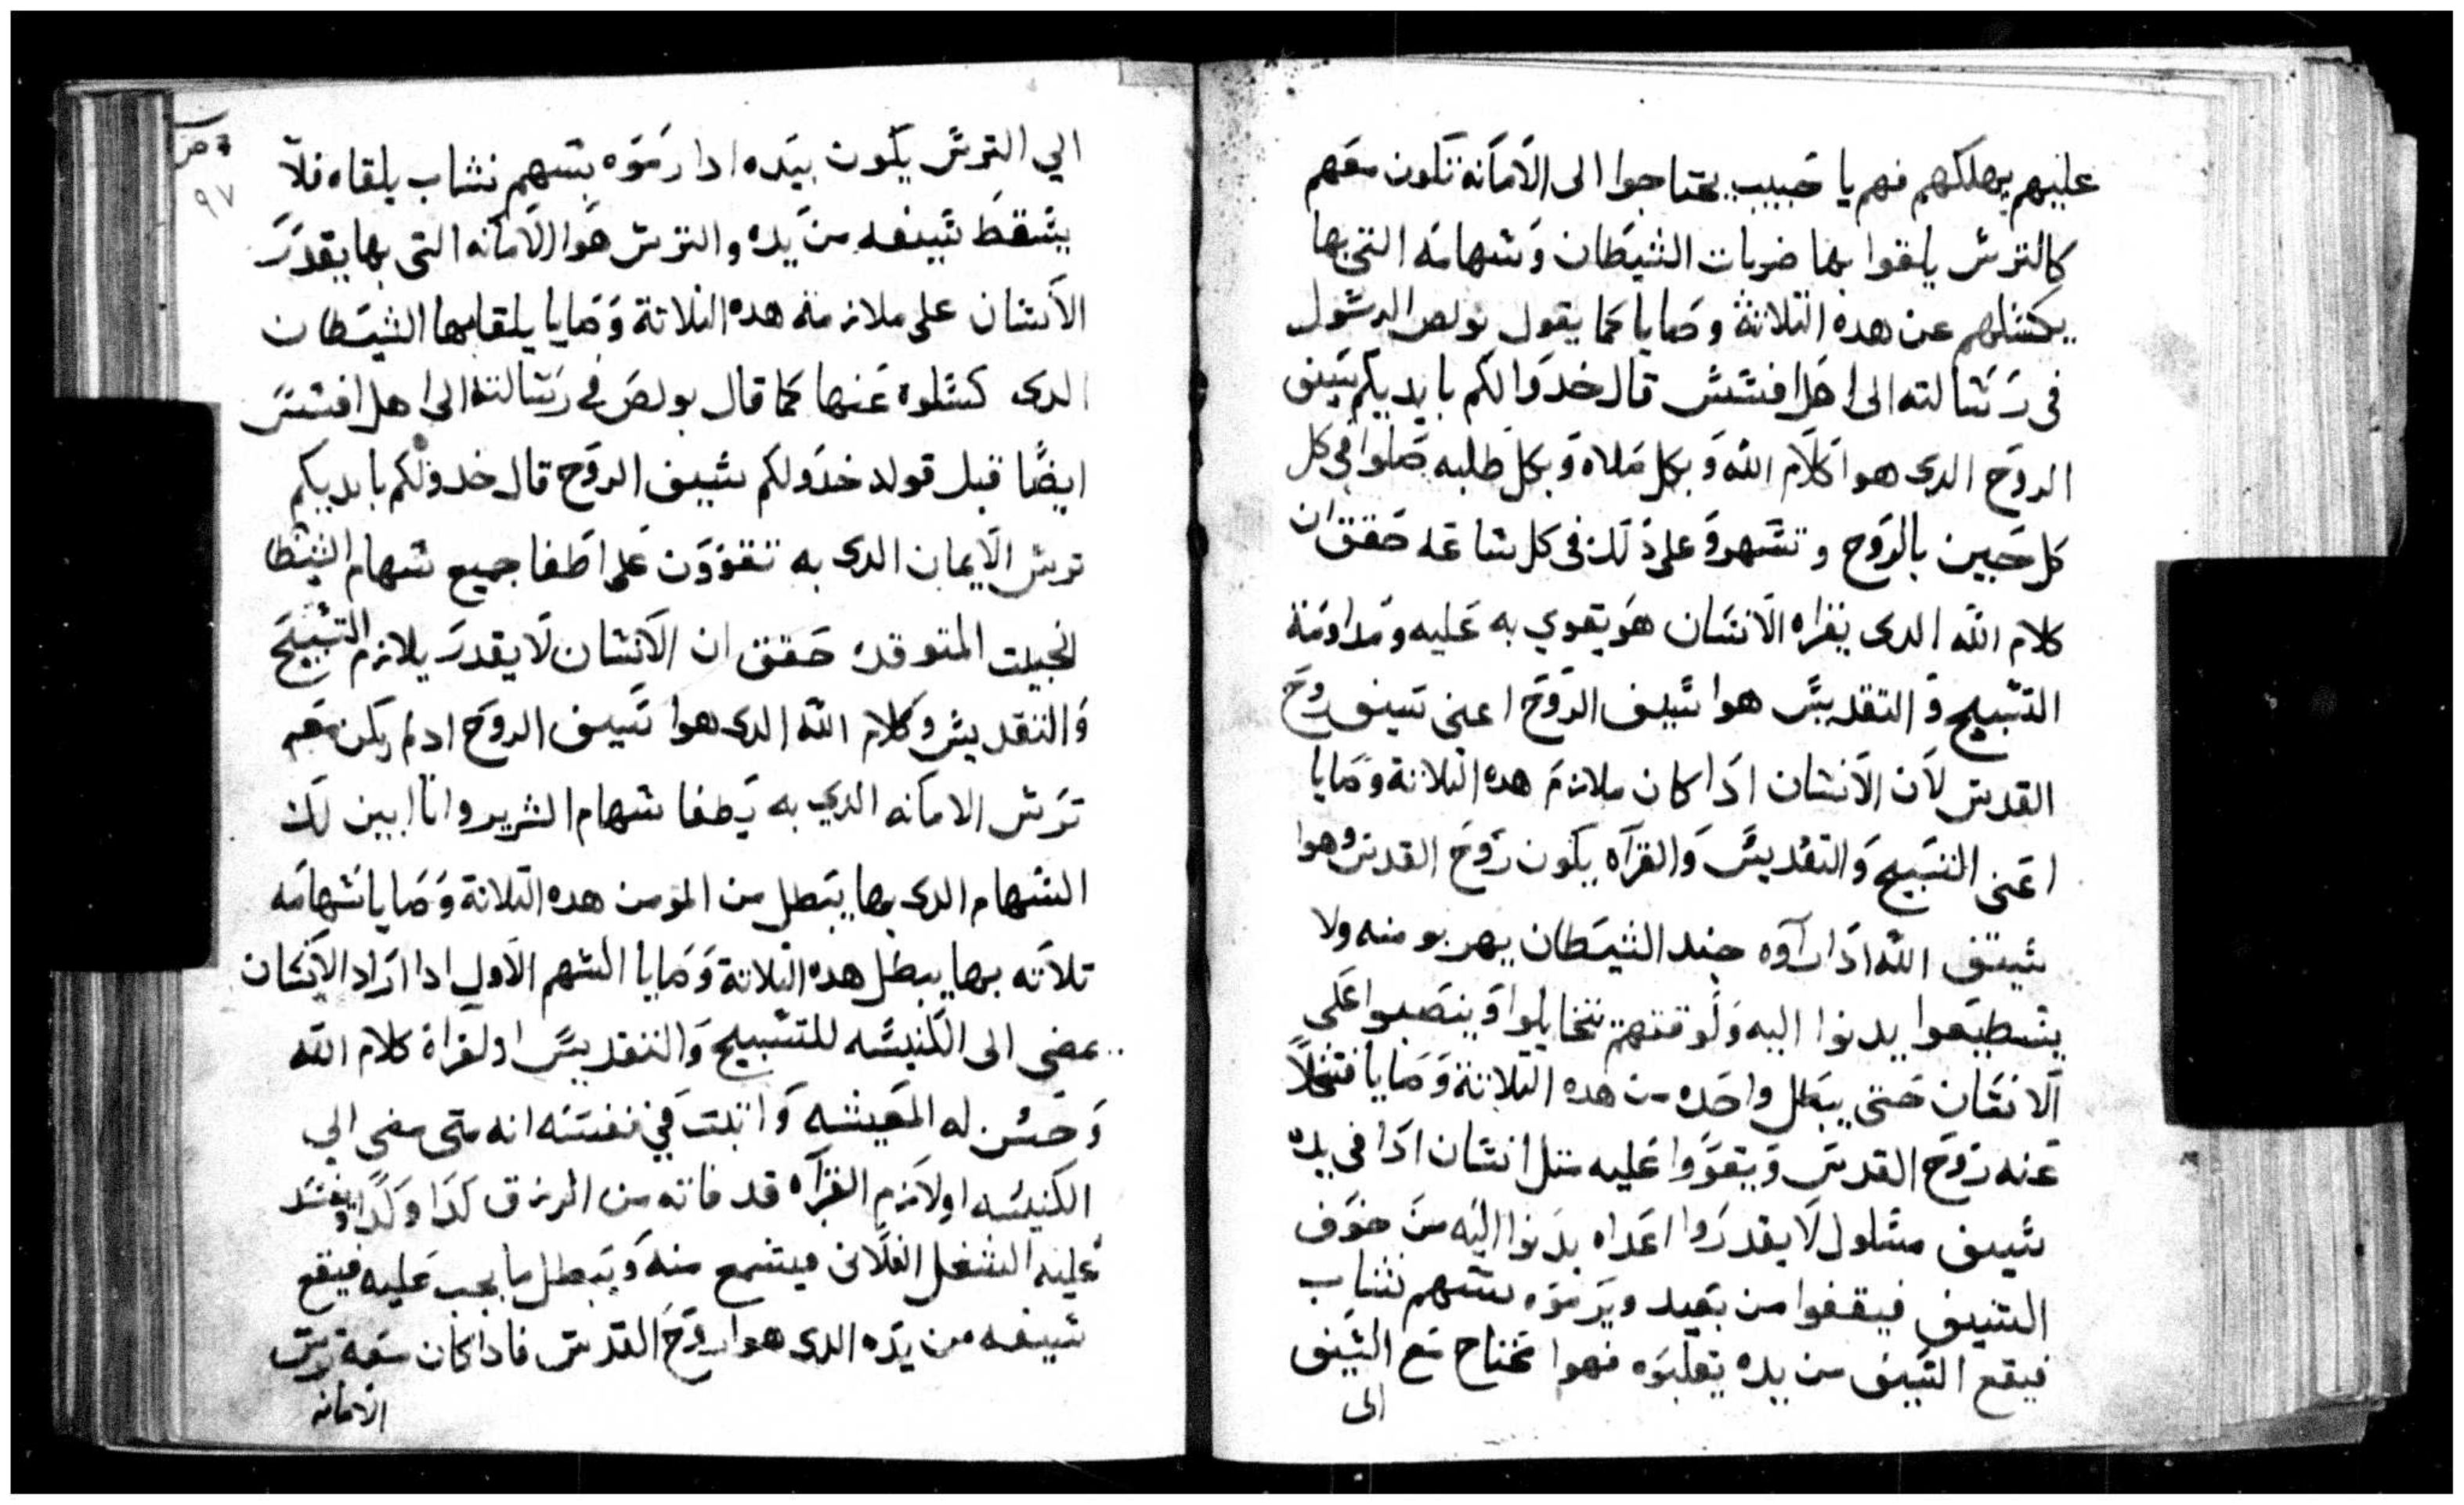 عليهم يهلكهم فهم يا حبيب يحتاجوا الى الامانه تكون معهم
كالترش يلقوا بها ضربات الشيطان وشهامه التى بها
يكشلهم عن هده التلاتة وصايا كما يقول بولص الرشول
فى رشالته الى اهل افشش قال خدوا لكم بايديكم شيف
الروح الدى هوا كلام الله وبكل صلاه وبكل طلبه صلوا فى كل
كل حين بالروح وتشهروا على دلك فى كل شاعه حقق ان
كلام الله الدى يقراه الانشان هو يقوي به عليه ومداومة
التشبيح والتقديش هوا شيف الروح اعنى شيف روح
القدش لان الانشان ادا كان ملازم هده التلاتة وصايا
اعنى التشبيح والتقديش والقراه يكون روح القدش وهوا
شيف الله ادا راوه جند الشيطان يهربو منه ولا
يشطيعوا يدنوا اليه ولوقتهم تتخايلوا وينصبوا على
الانشان حتى يبطل واحده من هده التلاتة وصايا فتتخلا
عنه روح القدش ويتقووا عليه متل انشان ادا فى يده
شيف مشلول لا يقدروا اعداه يدنوا اليه من خوف
الشيف فيقفوا من بعيد ويرموه بشهم نشاب
فيقع الشيف من يده يغلبوه فهوا تحتاج مع الشيف
الى
الي الترش يكون بيده ادا رموه بشهم نشاب يلقاه فلا
٩٧
يشقط شيفه من يده والترش هوا الامانه التى بها يقدر
الانشان على ملازمة هده التلاتة وصايا يلقا بها الشيطان
الدى كشلوه عنها كما قال بولص فى رشالته الى اهل افشش
ايضا قبل قوله خدولكم شيف الروح قال خدولكم بايديكم
ترش الايمان الدى به تقووون على اطفا جميع شهام الشيطا
الخبيت المتوقده حقق ان الانشان لا يقدر يلازم التشبيح
والتقديش وكلام الله الدى هوا شيف الروح ادلم يكن معه
ترش الامانه الدي به يطفا شهام الشرير وانا ابين لك
الشهام الدى بها يبطل من المومن هده التلاتة وصايا شهامه
تلاته بها يبطل هده التلاتة وصايا الشهم الاول ادا اراد الانشان
يمضى الى الكنيشه للتشبيح والتقديش او لقراة كلام الله
وحشن له المعيشه واتبت في نفشه انه متى مضى الي
الكنيشه اولازم القراه قد فاته من الرزق كدا وكدا ويفشد
عليه الشغل الفلانى فيشمع منه ويبطل ما يجب عليه فيقع
شيفه من يده الدى هوا روح القدش فادا كان معه ترش
الامانه